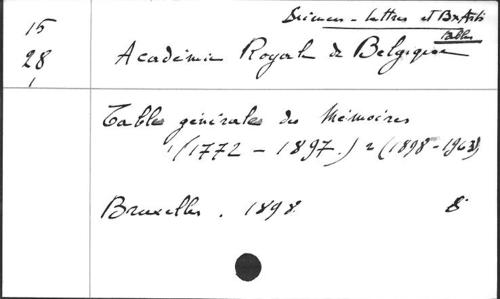 15
28
1
Sciences - Lettres et Bx Arts
Tables
Académie Royale de Belgique
Tables générales des Mémoires
1 (1772 - 1897.) 2 (1898-1963)
Bruxelles. 1898. 8°